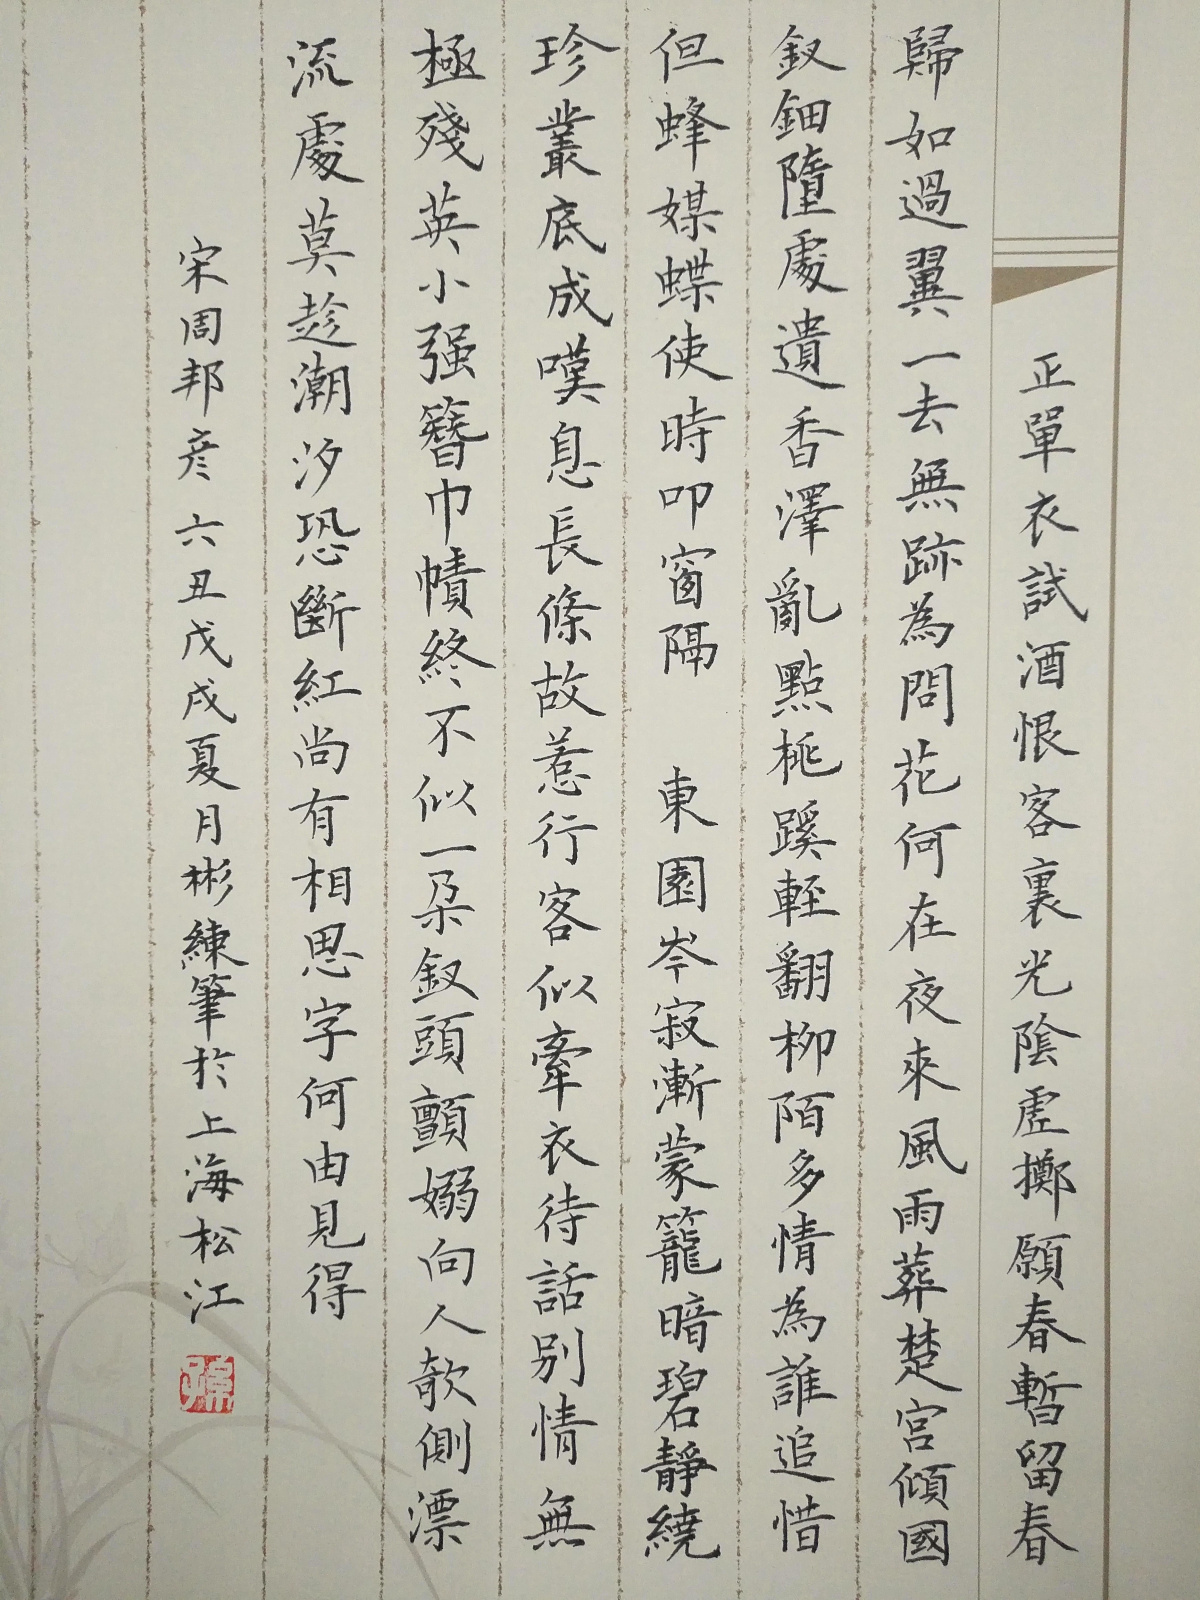 正單衣試酒恨客裏光陰虛擲願春暫留春
歸如過翼一去無跡為問花何在夜來風雨葬楚宮傾國
釵鈿墮處遺香澤亂點桃蹊輕翻柳陌多情為誰追惜
但蜂媒蝶使時叩窗隔 東園岑寂漸蒙籠暗碧靜繞
珍叢底成嘆息長條故惹行客似牽衣待話別情無
極殘英小强簪巾幘終不似一朵釵頭顫嫋向人欹側漂
流處莫趁潮汐恐斷紅尚有相思字何由見得
宋周邦彥六丑戊戌夏月彬練筆於上海松江
孫